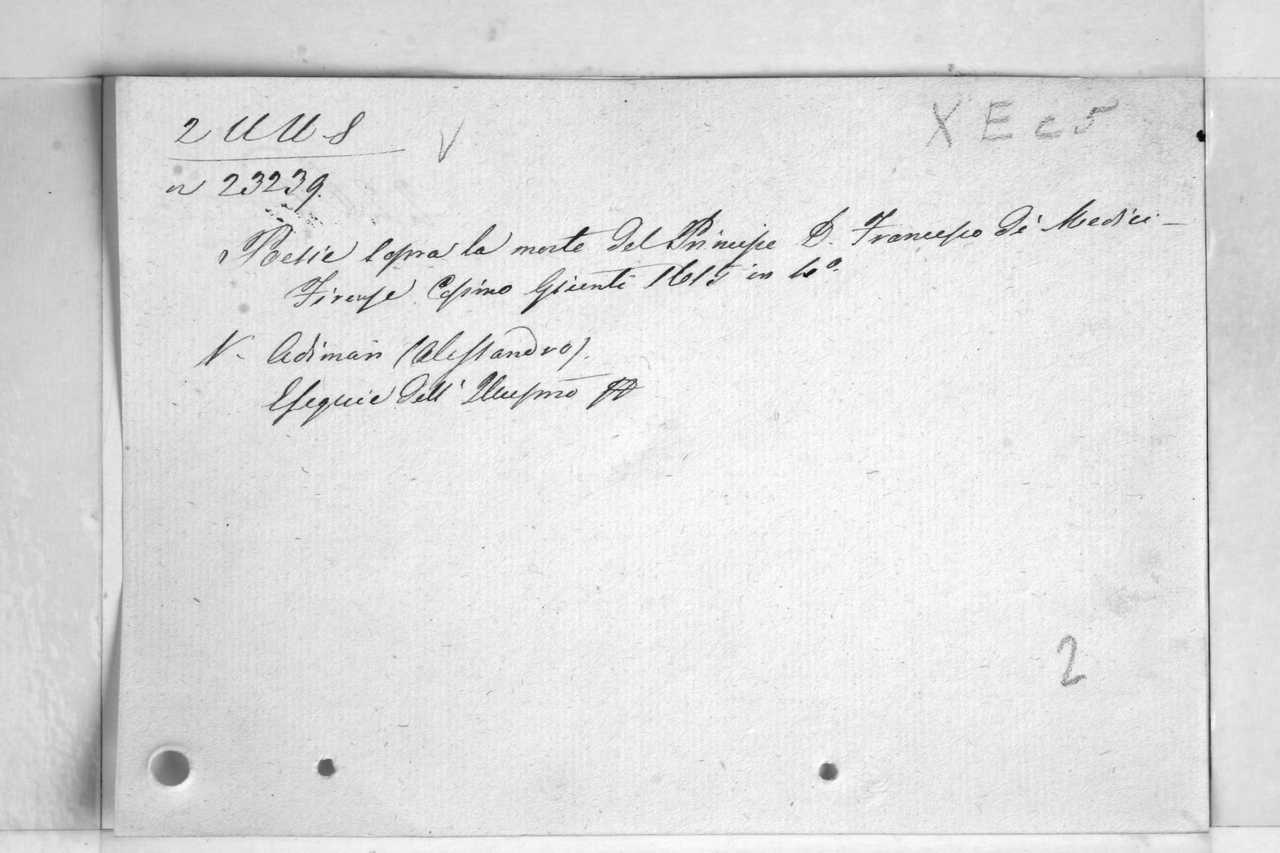 2 UU 8
V
X E c 5
n 23239.
Poesie sopra la morte del Principe D. Francesco di Medici –
Firenze Cosimo Giunti 1615 in 4°.
V. Adimari (Alessandro).
Esequie dell'
2